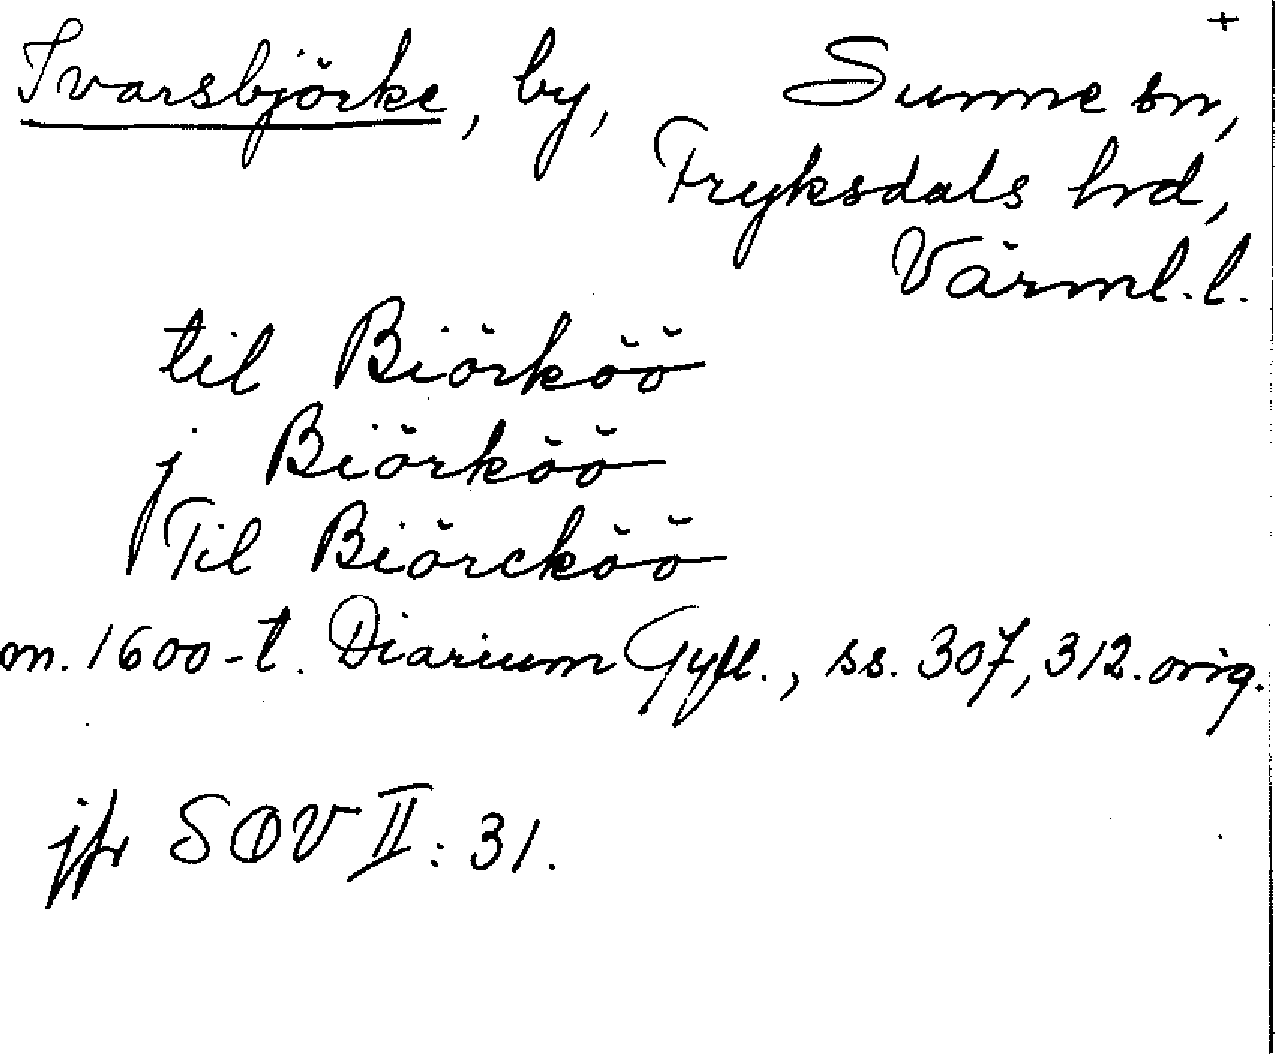 +
Ivarsbjörke, by, Sunne sn,
Fryksdals hrd,
Värml. l.
til Biörköö
j Biörköö
Til Biörcköö
m. 1600-t. Diarium Gyll., ss. 307, 312. orig.
jfr SOV II: 31.